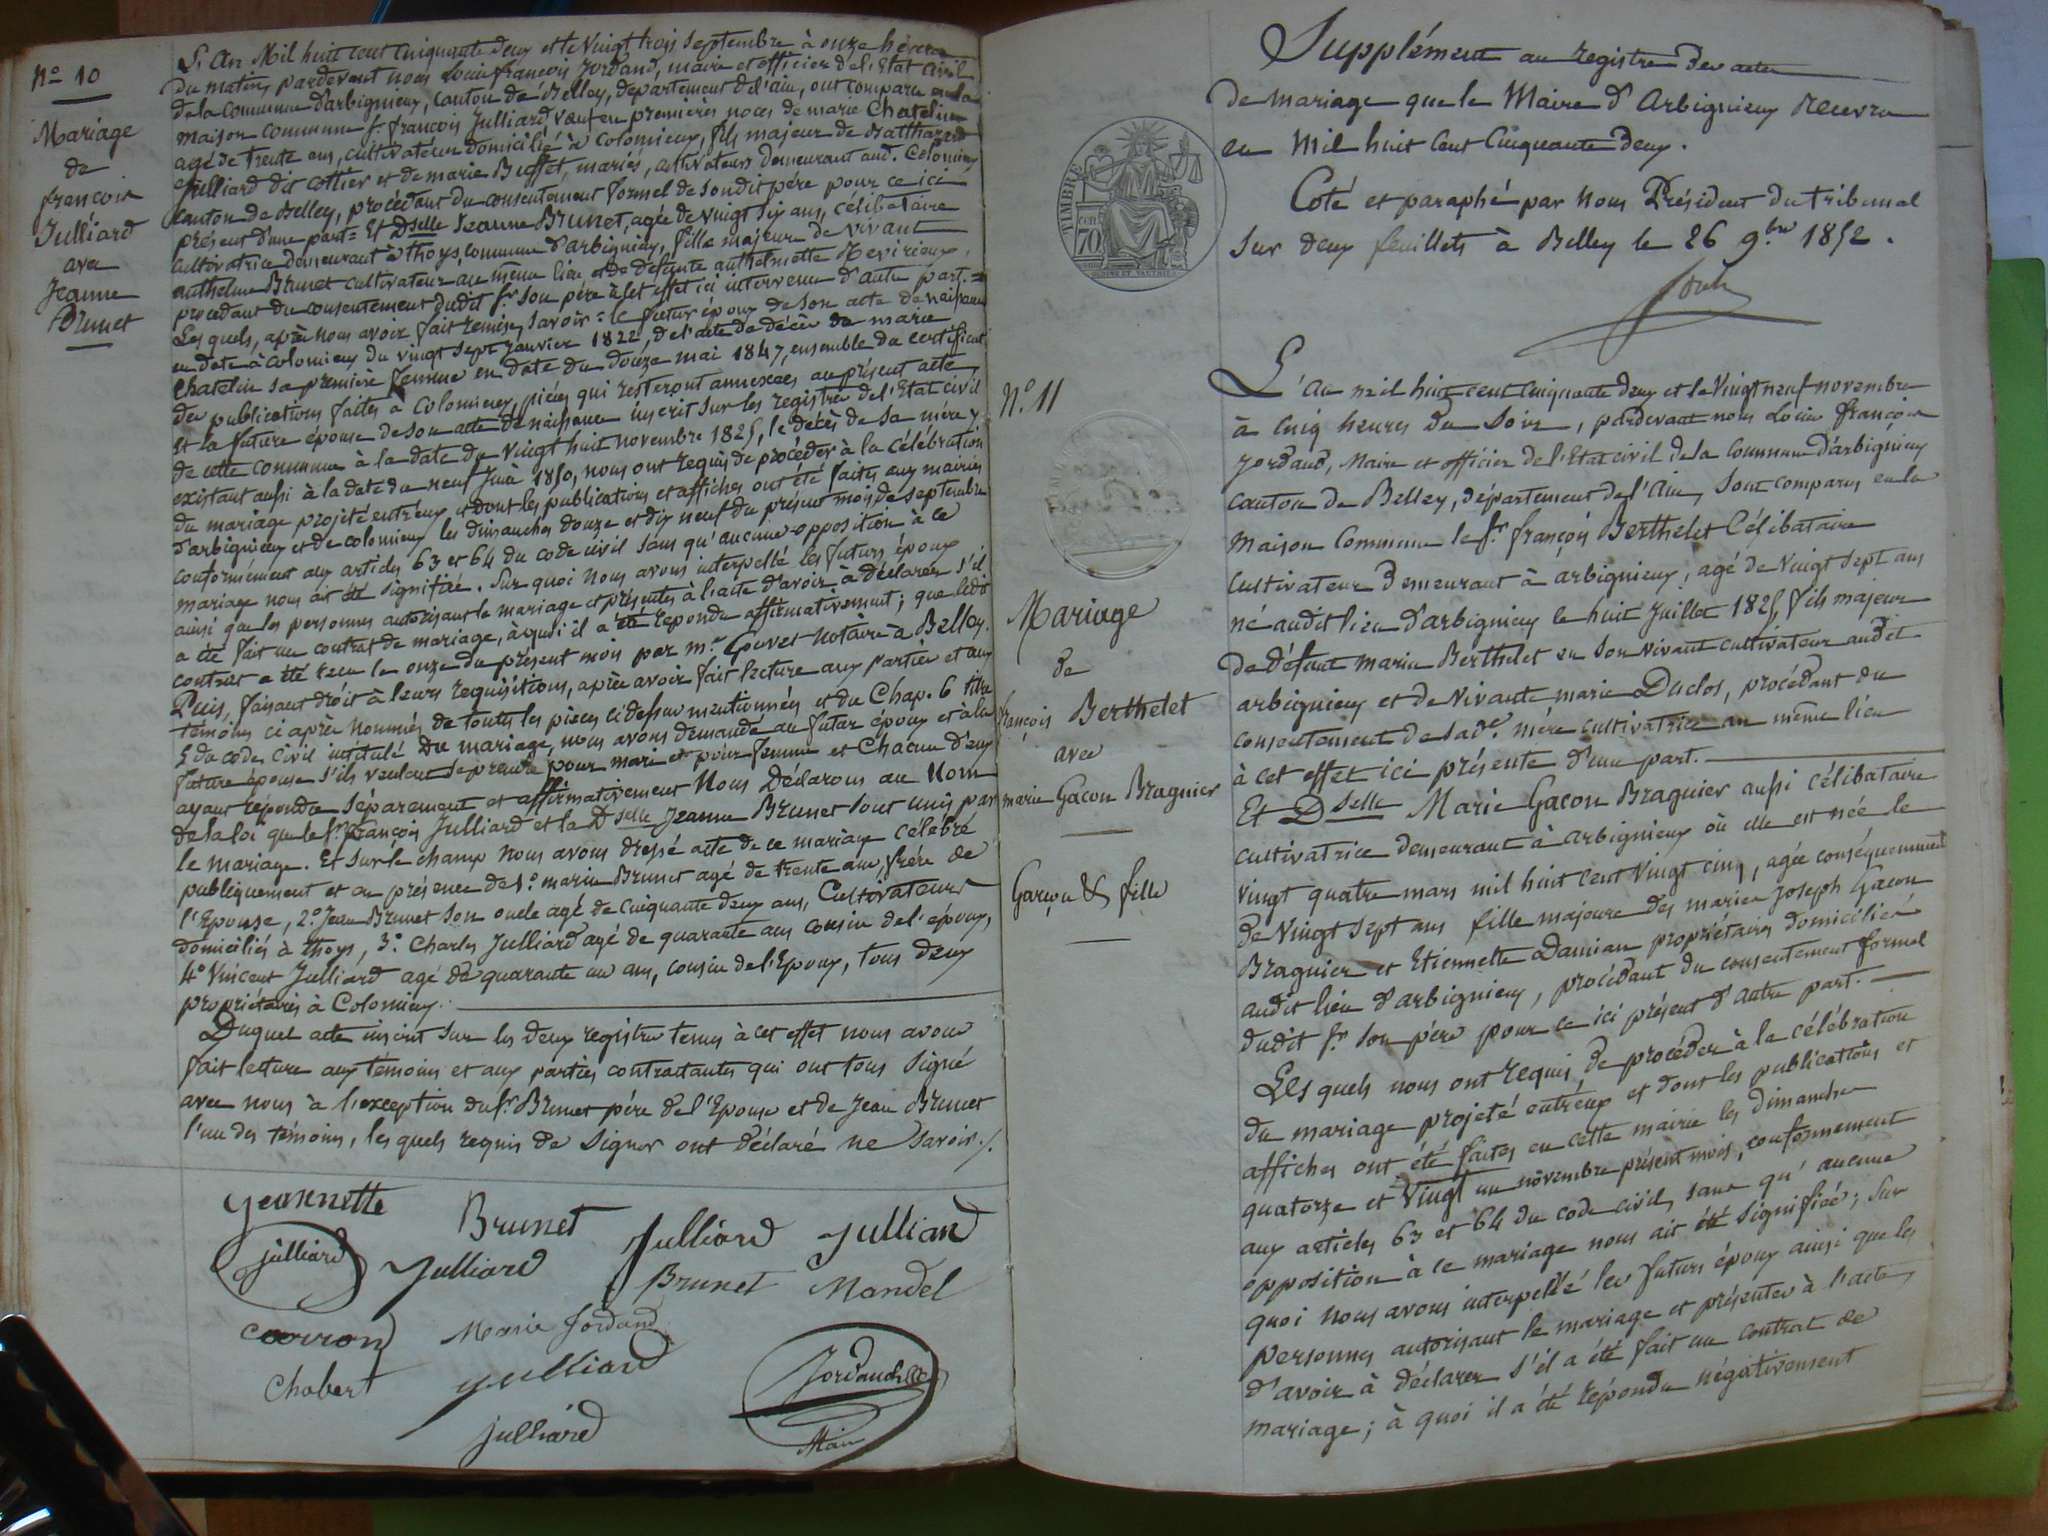 N° 10
Mariage
de
françois
Julliard
avec
Jeanne
Brunet
L'An Mil huit cent cinquante deux et le vingt trois septembre à onze heures
du matin, pardevant nous Louis françois Jordand, maire et officier de l'Etat civil
de la commune d'arbignieux, canton de Belley, département de l'ain, ont comparu en la
maison commune f. françois Julliard veuf en premières noces de marie Chatelin
agé de trente ans, cultivateur domicilié à colomieux, fils majeur de Balthazard
Julliard dit Cottier et de marie Buffet, mariés, cultivateurs demeurant aud. Colomieux
canton de Belley, procédant du consentement formel de son dit père pour ce ici
présent d'une part = Et Dselle Jeanne Brunet, agée de vingt six ans, célibataire
cultivatrice demeurant à thoys, commune d'arbignieux, fille majeure de vivant
anthelme Brunet cultivateur au même lieu et de défunte anthelmette
procédant du consentement dudit Sr son père à cet effet ici intervenu d'autre part. =
Les quels, après nous avoir fait remise, savoir = le futur époux de son acte de naissance
en date à colomieux du vingt sept Janvier 1822, de l'acte de décès de marie
Chatelin sa première femme en date du douze mai 1847, ensemble du certificat
des publications faites à Colomieux, pièces qui resteront annexées au présent acte,
et la future épouse de son acte de naissance inscrit sur les registres de l'Etat civil
de cette commune à la date du vingt huit novembre 1825, le décès de sa mère y
existant aussi à la date du neuf Juin 1850, nous ont requis de procéder à la célébration
du mariage projeté entr'eux et dont les publications et affiches ont été faites aux mairies
d'arbignieux et de colomieux les dimanches douze et dix neuf du présent mois de septembre
conformément aux articles 63 et 64 du code civil sans qu'aucune opposition à ce
mariage nous ait été signifiée. Sur quoi nous avons interpellé les futurs époux
ainsi que les personnes autorisant le mariage et présentes à l'acte d'avoir à déclarer s'il
a été fait un contrat de mariage, à quoi il a été répondu affirmativement; que ledit
contrat a été reçu le onze du présent mois par me. Guvet notaire à Belley.
Puis, faisant droit à leurs requisitions, après avoir fait lecture aux parties et aux
témoins ci après nommés, de toutes les pièces ci dessus mentionnées et du Chap. 6 titre
5 du code Civil intitulé Du mariage, nous avons demandé au futur époux et à la
future épouse s'ils veulent se prendre pour mari et pour femme et Chacun d'eux
ayant répondu séparement et affirmativement Nous Déclarons au Nom
de la loi que le Sr. françois Julliard et la Dselle Jeanne Brunet sont unis par
le mariage. Et sur le champ nous avons dressé acte de ce mariage célébré
publiquement et en présence de 1° marin Brunet agé de trente ans, frère de
l'Epouse, 2° Jean Brunet son oncle agé de cinquante deux ans, Cultivateurs
domiciliés à thoys, 3° Charles Julliard agé de quarante ans cousin de l'époux,
4° Vincent Julliard agé de quarante un ans, cousin de l'Epoux, tous deux
propriétaires à Colomieux.
Duquel acte inscrit sur les deux registres tenus à cet effet nous avons
fait lecture aux témoins et aux parties contractantes qui ont tous signé
avec nous à l'exception du Sr. Brunet père de l'Epouse et de Jean Brunet
l'un des témoins, les quels requis de signer ont déclaré ne savoir./.
Jeannette Brunet Julliard Jullian
Julliard Julliard Brunet Mandel
Carron Marie Jordand
Chabert Julliard Jordand
Julliard Maire
Supplément au registre des actes
de mariage que le Maire d'Arbignieux recevra
en Mil huit Cent Cinquante Deux.
Coté et paraphé par nous Président du tribunal
sur deux feuillets à Belley le 26 9bre 1852.
TIMBRE
70
N° 11
Mariage
de
françois Berthelet
avec
marie Gacon Braguier
Garçon & fille
L'An mil huit cent cinquante deux et le vingt neuf novembre
à cinq heures du soir, pardevant nous Louis françois
Jordand, Maire et officier de l'Etat civil de la Commune d'arbignieux
canton de Belley, département de l'ain, sont comparus en la
maison Commune le Sr. françois Berthelet Célibataire
cultivateur demeurant à arbignieux, agé de vingt sept ans
né audit lieu d'arbignieux le huit Juillet 1825, fils majeur
de défunt marin Berthelet en son vivant cultivateur audit
arbignieux et de vivante marie Duclos, procédant du
consentement de sa de. mère cultivatrice au même lieu
à cet effet ici présente d'une part.
Et Dselle Marie Gacon Braguier aussi célibataire
cultivatrice demeurant à arbignieux où elle est née le
vingt quatre mars mil huit cent vingt cinq, agée conséquemment
de vingt sept ans fille majeure des mariés Joseph Gacon
Braguier et Etiennette Damian propriétaires domiciliés
audit lieu d'arbignieux, procédant du consentement formel
dudit Sr. son père pour ce ici présent d'autre part.
Les quels nous ont requis de procéder à la célébration
du mariage projeté entr'eux et dont les publications et
affiches ont été faites en cette mairie les dimanche
quatorze et vingt un novembre présent mois, conformément
aux articles 63 et 64 du code civil, sans qu'aucune
opposition à ce mariage nous ait été signifiée; sur
quoi nous avons interpellé les futurs époux ainsi que les
personnes autorisant le mariage et présentes à l'acte,
d'avoir à déclarer s'il a été fait un contrat de
mariage; à quoi il a été répondu négativement